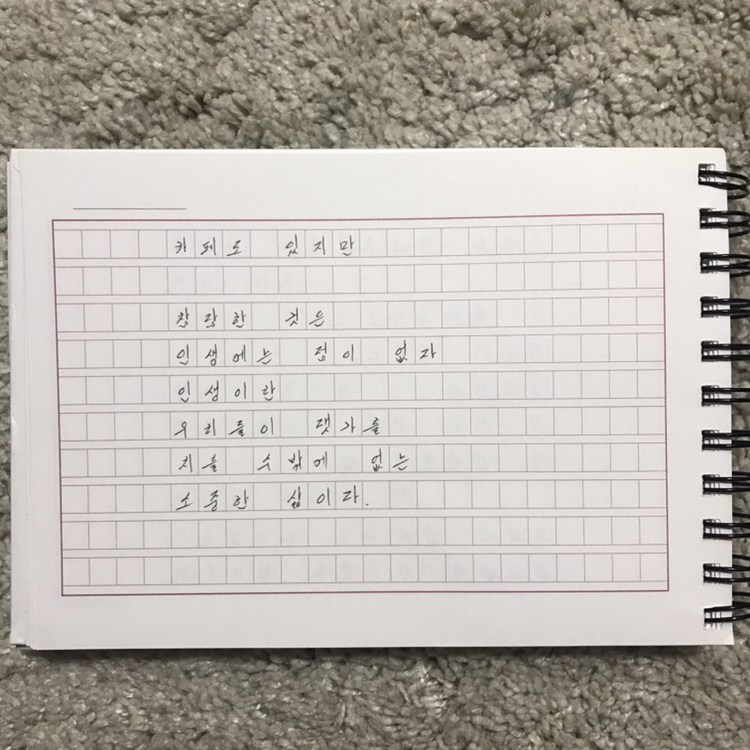 카페로 있지만
참 많한 것은
인생에는 덤이 없자
인생이란
우리들이 댓가를
치를 수밖에 없는
소중한 삶이다.